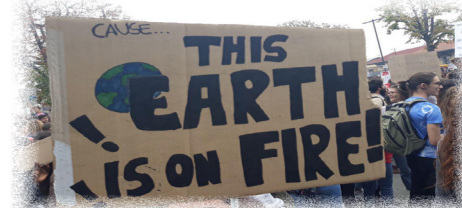 CAUSE...
THIS
EARTH
IS ON FIRE!